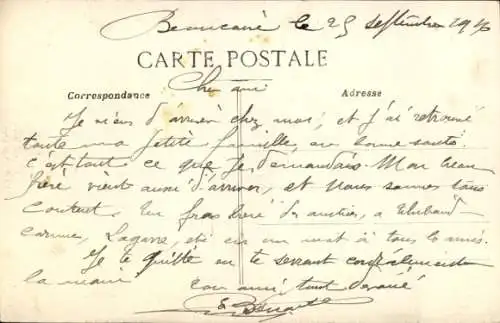 Beaucaire le 25 septembre 19
CARTE POSTALE
Cher ami
Correspondance
Adresse
Je viens d'arriver chez moi, et j'ai retrouvé
toute ma petite famille, en bonne santé
c'est tout ce que je demandais. Mon beau
frère vient aussi d'arriver, et nous sommes tous
content. Un gros baisé à
Lagarre, etc en un mot à tous les amis.
Je te quitte en te serrant cordialement
la main ton ami tout dévoué